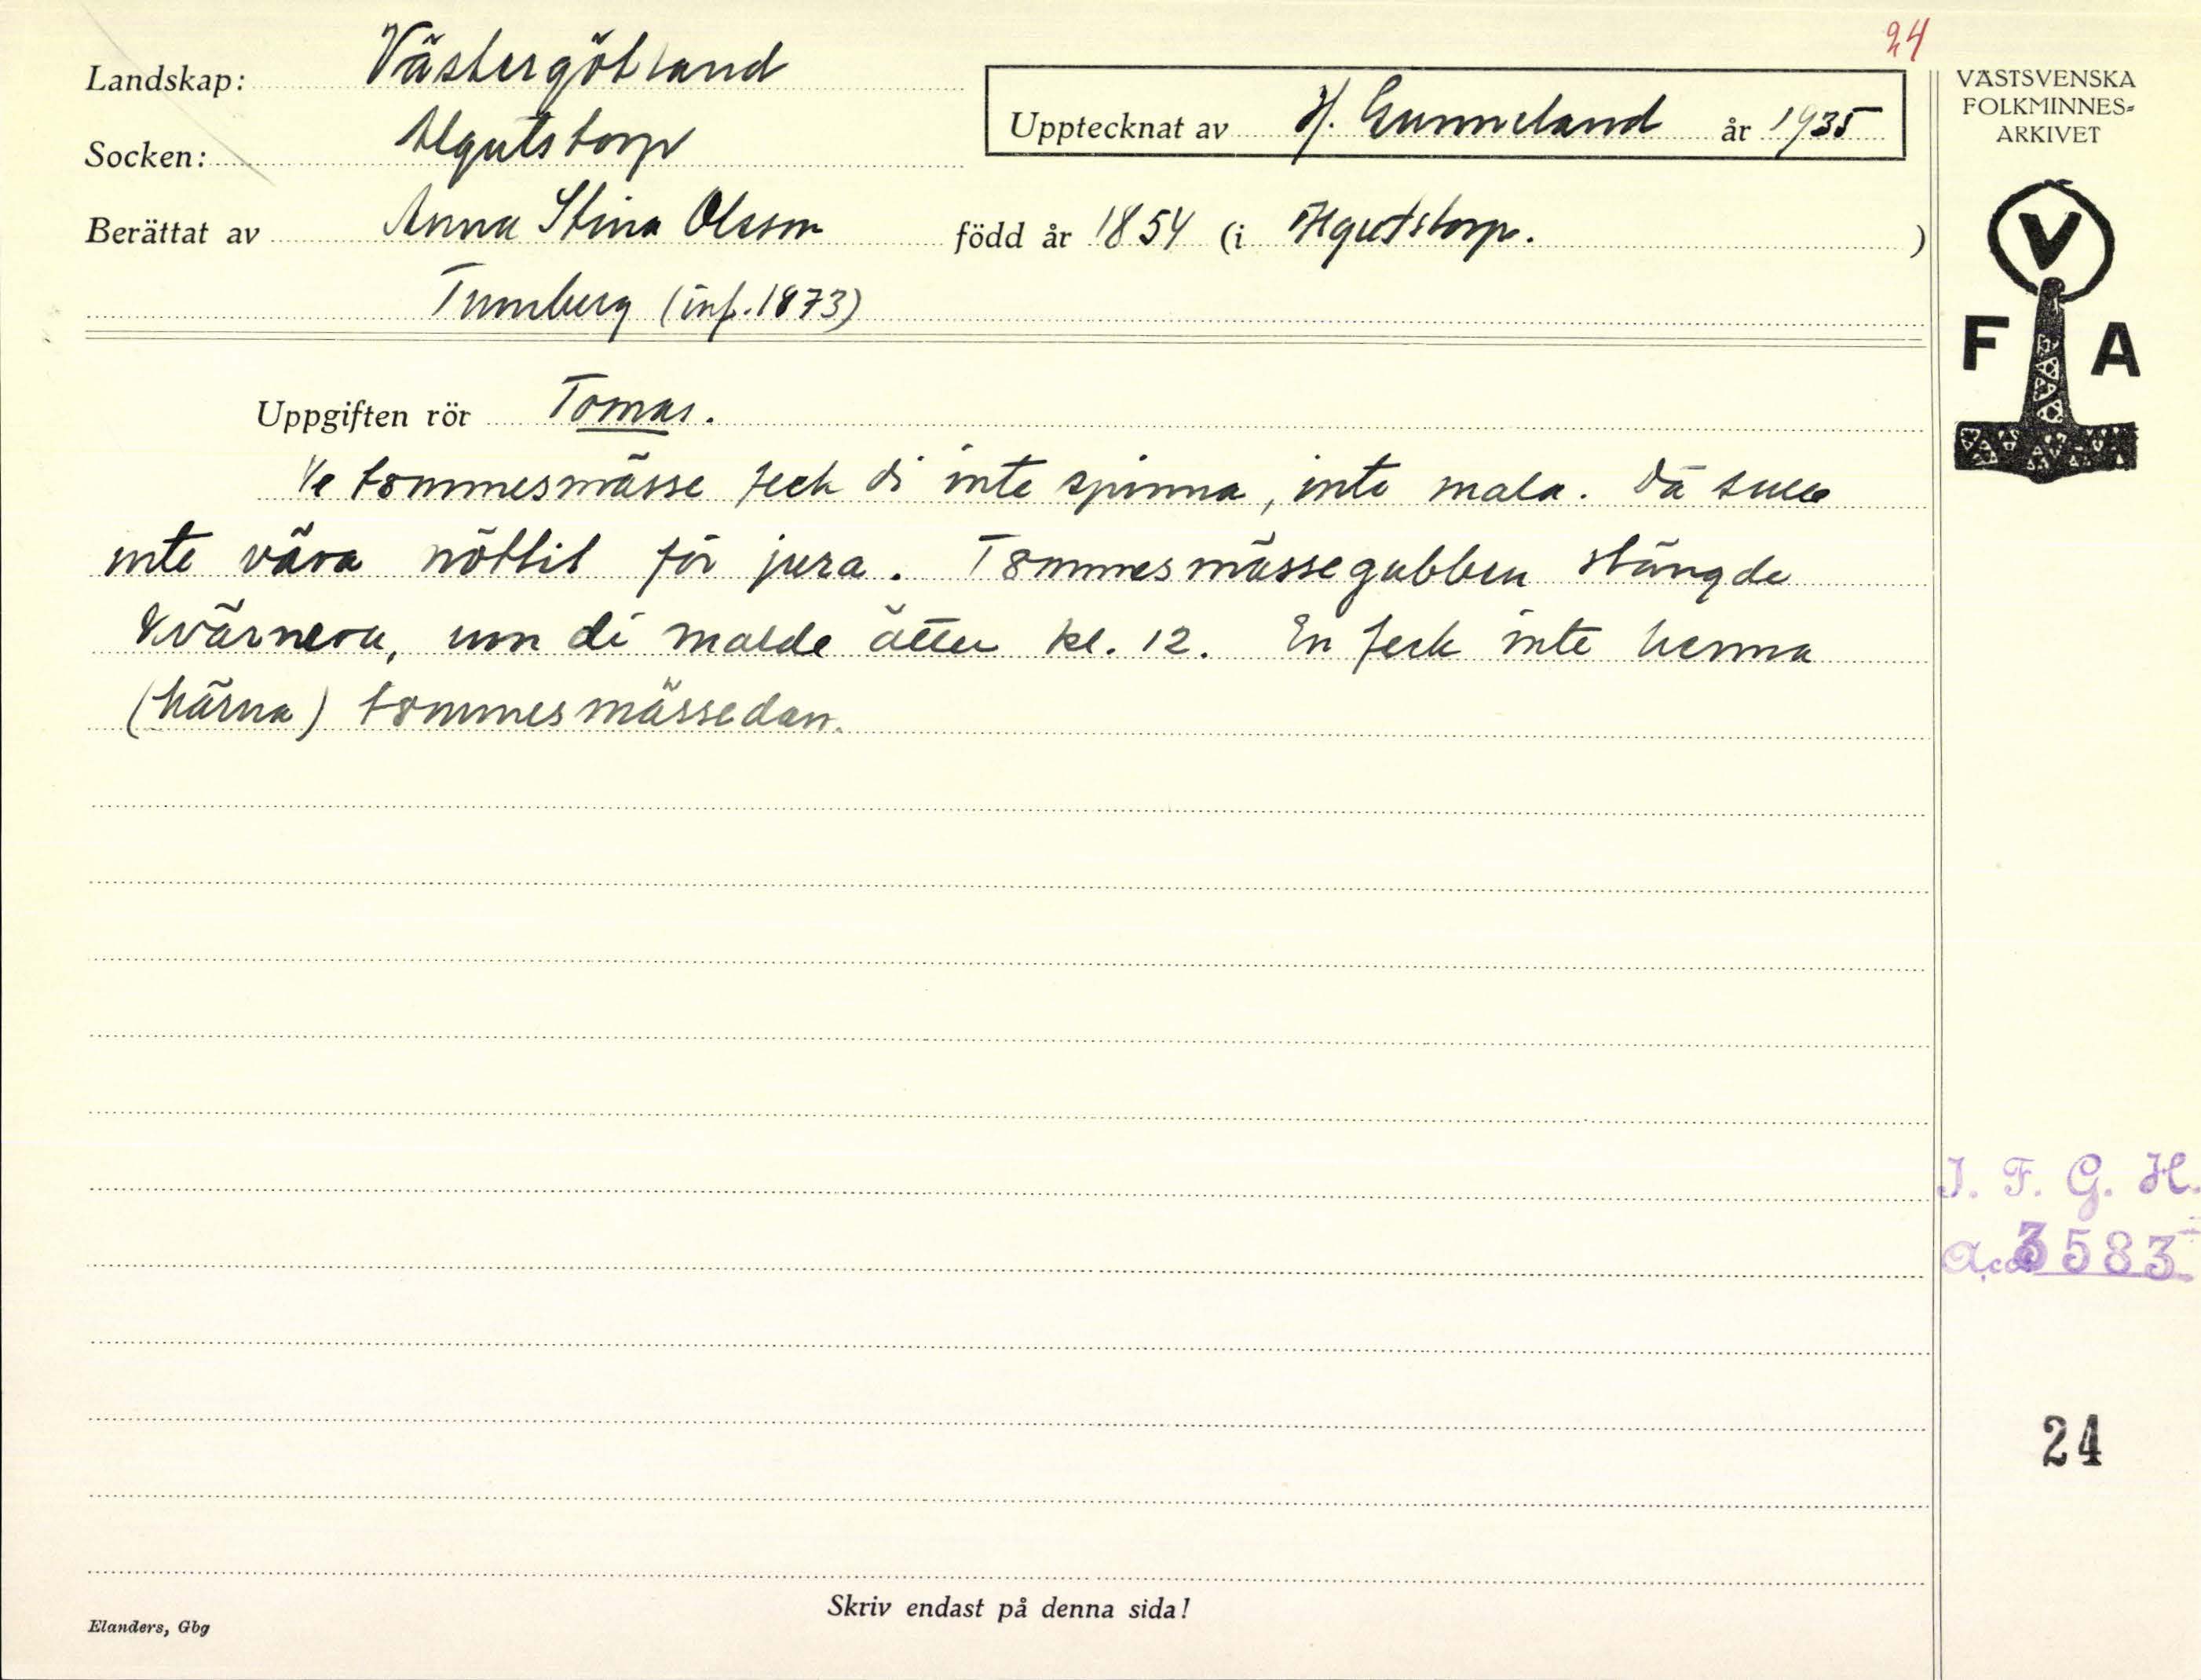 24
Landskap: Västergötland
VÄSTSVENSKA
FOLKMINNES-
ARKIVET
Upptecknat av H. Gunneland år 1935
Socken: Algutstorp
Berättat av Anna Stina Olsson född år 1854 (i Algutstorp. )
V
Tumberg (inf. 1873)
F A
Uppgiften rör Tomas.
Ve tommesmässe feck di inte spinna, inte mala. Dä sulle
inte vära nöttit för jura. Tommesmässegubben stängde
kvärnera, um di malde ätter kl. 12. En feck inte kenna
(kärna) tommesmässedan.
I. F. G. H.
Acc 3583
24
Skriv endast på denna sida!
Elanders, Gbg